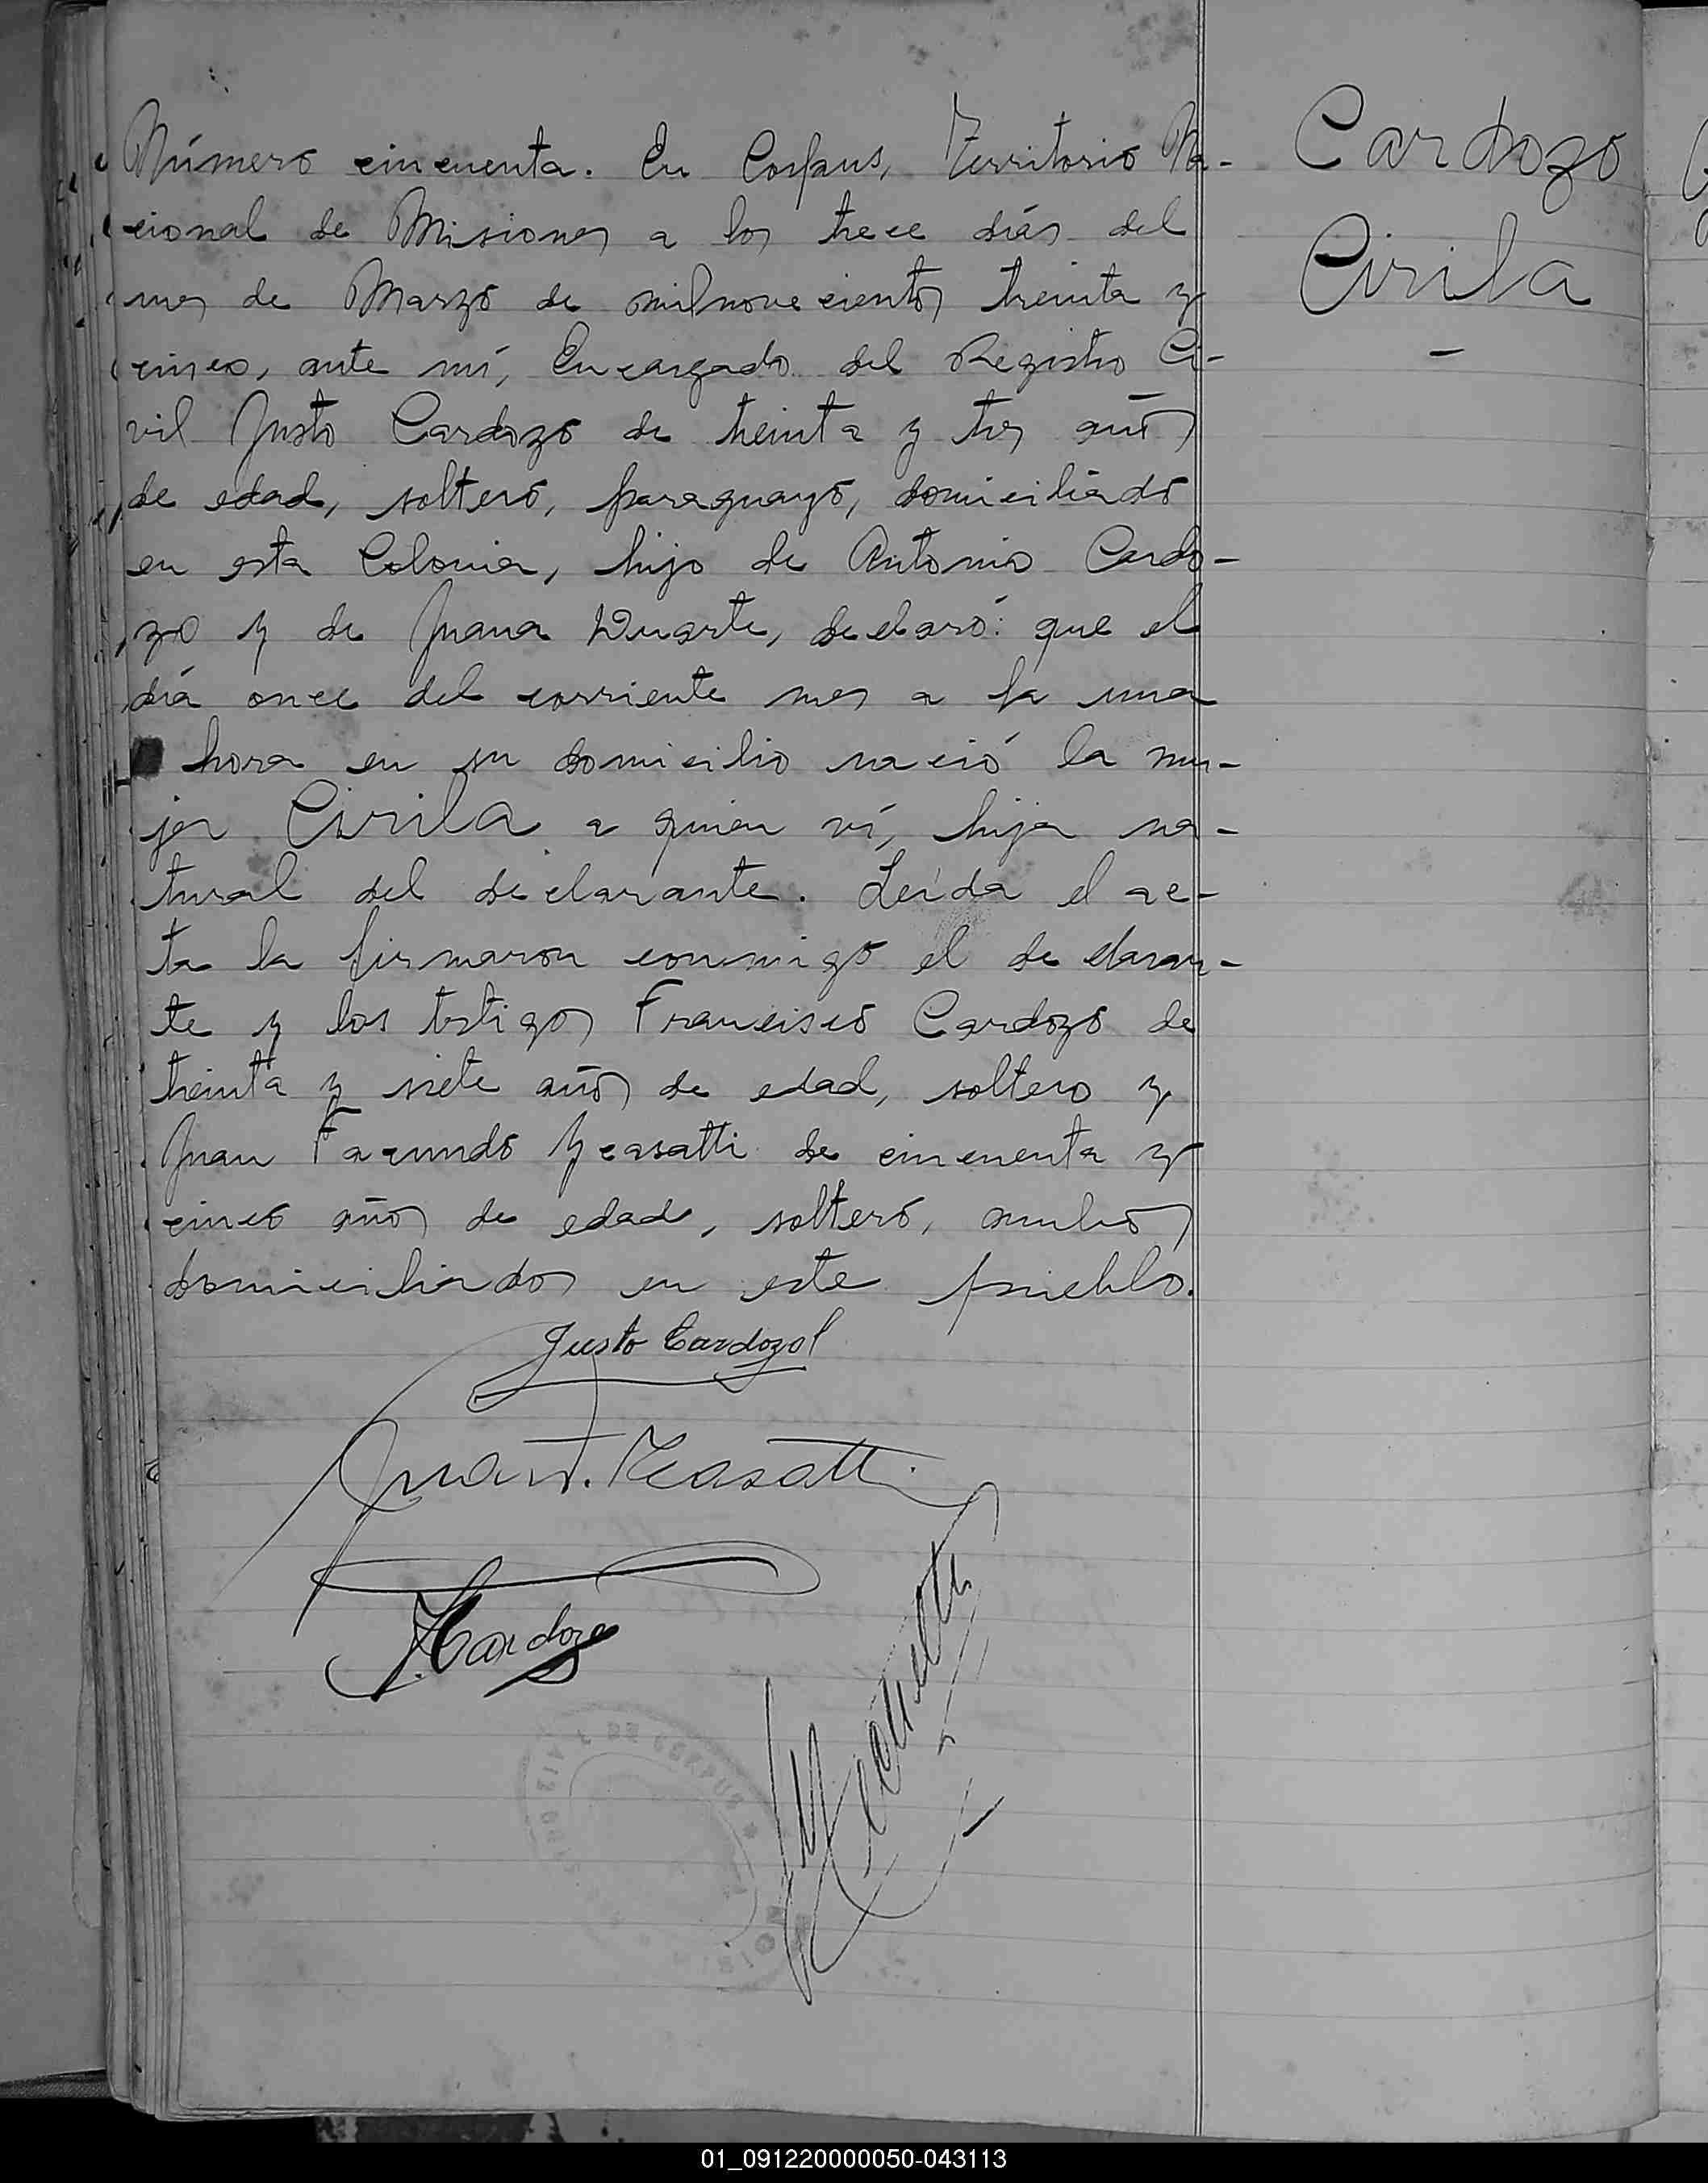 Número cincuenta. En Corpus, Territorio Na-
cional de Misiones a los trece días del
mes de Marzo de milnovecientos treinta y
cinco, ante mí, Encargado del Registro Ci-
vil Justo Cardozo de treinta y tres años
de edad, soltero, paraguayo, domiciliado
en esta Colonia, hijo de Antonio Cardo-
zo y de Juana Duarte, declaró: que el
día once del corriente mes a la una
hora en su domicilio nació la mu-
jer Cirila a quien ví, hija na-
tural del declarante. Leída el ac-
ta la firmaron conmigo el declaran-
te y los testigos Francisco Cardozo de
treinta y siete años de edad, soltero y
Juan Facundo Ycasatti de cincuenta y
cinco años de edad, soltero, ambos
domiciliados en este pueblo.
Cardozo
Cirila
Justo Cardozo
Juan F. Ycasatti
Cardozo
DE CORPUS
01_091220000050-043113